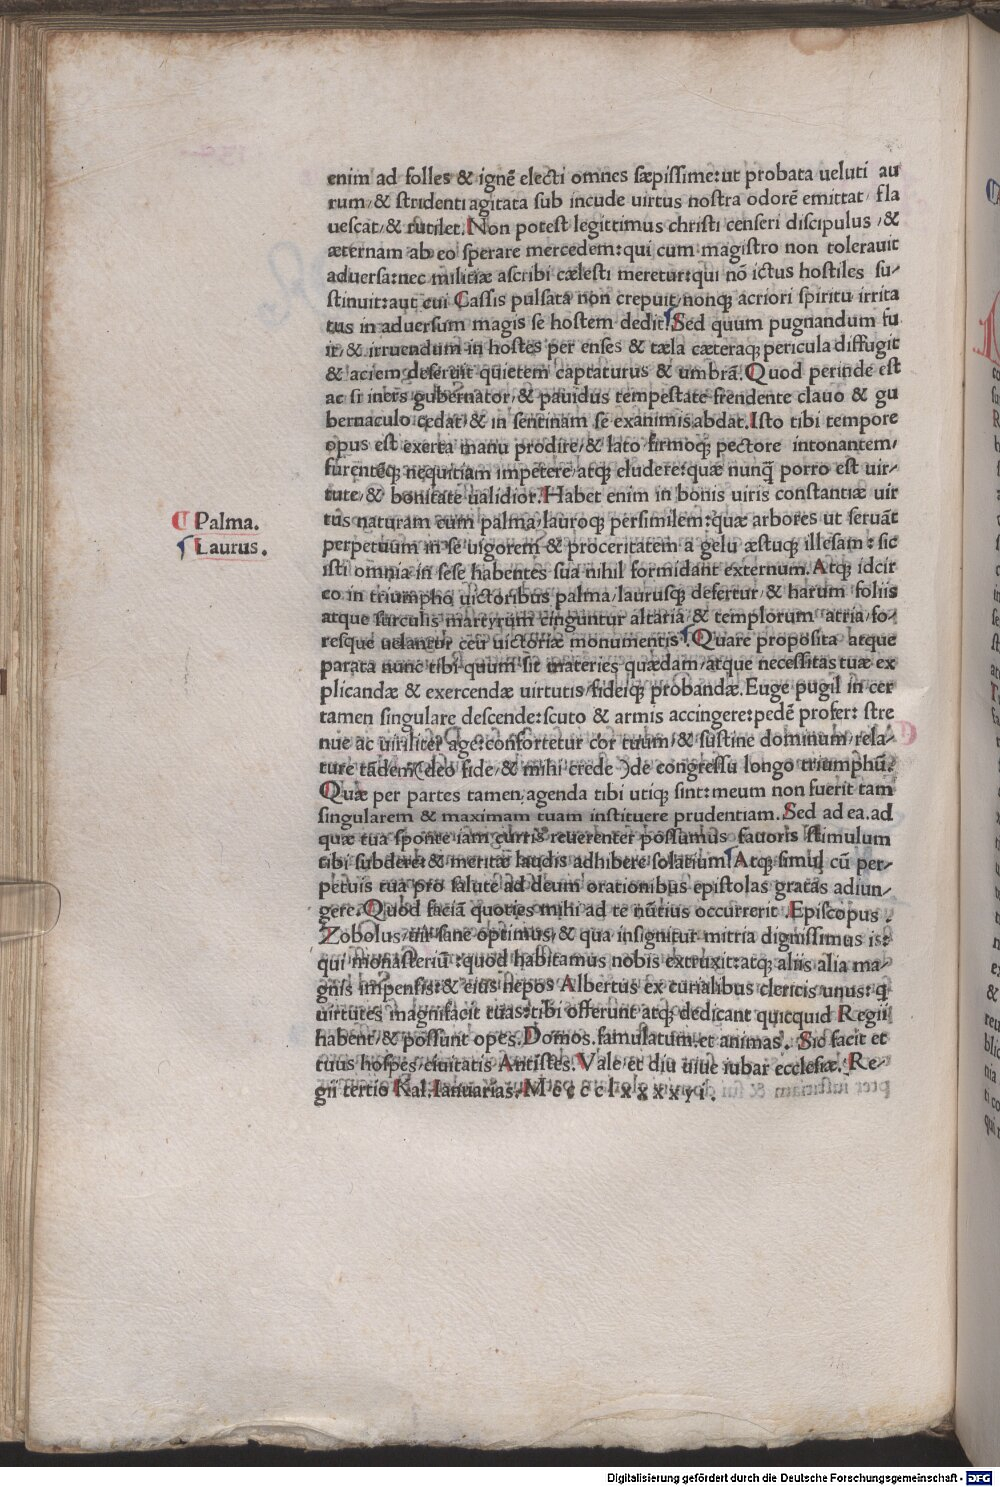 enim ad folles & ignē electi omnes sæpissime:ut probata ueluti au
rum/& stridenti agitata sub incude uirtus nostra odorē emittat/ fla
uescat/& rutilet. Non potest legittimus christi censeri discipulus /&
æternam ab eo sperare mercedem:qui cum magistro non tolerauit
aduersa:nec militiæ ascribi cælesti meretur:qui nō ictus hostiles su/
stinuit:aut cui Cassis pulsata non crepuit/nonq; acriori spiritu irrita
tus in aduersum magis se hostem dedit. Sed quum pugnandum fu
it/& irruendum in hostes per enses & tæla cæteraq; pericula diffugit
& aciem deseruit quietem captaturus & umbrā. Quod perinde est
ac si iners gubernator/& pauidus tempestate frendente clauo & gu
bernaculo cedat/& in sentinam se exanimis abdat. Isto tibi tempore
opus est exerta manu prodire/& lato firmoq; pectore intonantem/
furentēq; nequitiam impetere/atq; eludere:quæ nunq̄ porro est uir/
tute/& bonitate ualidior. Habet enim in bonis uiris constantiæ uir
tus naturam eum palma/lauroq; persimilem:quæ arbores ut seruāt
¶ Palma.
perpetuum in se uigorem & proceritatem a gelu æstuq; illesam: sic
Laurus.
isti omnia in sese habentes sua nihil formidant externum. Atq; idcir
co in triumpho uictoribus palma/laurusq; defertur/& harum foliis
atque surculis martyrum cinguntur altaria/& templorum atria/fo/
resque uelantur ceu uictoriæ monumentis. Quare proposita atque
parata nunc tibi quum sit materies quædam/atque necessitas tuæ ex
plicandæ & exercendæ uirtutis/fideiq; probandæ. Euge pugil in cer
tamen singulare descende:scuto & armis accingere:pedē profer: stre
nue ac uiriliter age:confortetur cor tuum/& sustine dominum/rela/
ture tādem(deo fide/& mihi crede )de congressu longo triumphū.
Quæ per partes tamen agenda tibi utiq; sint:meum non fuerit tam
singularem & maximam tuam instituere prudentiam. Sed ad ea.ad
quæ tua sponte iam curris reuerenter possumus fauoris stimulum
tibi subdere/& meritæ laudis adhibere solatium. Atq; simul cū per/
petuis tua pro salute ad deum orationibus epistolas gratas adiun/
gere. Quod faciā quoties mihi ad te nūtius occurrerit. Episcopus
Zobolus/uir sane optimus/& qua insignitur mitria dignissimus is:
qui monasteriū :quod habitamus nobis extruxit:atq; aliis alia ma/
gnis impensis:& eius nepos Albertus ex curialibus clericis unus: q̄
uirtutes magnifacit tuas:tibi offerunt atq; dedicant quicquid Regii
habent/& possunt opes. Domos.famulatum.et animas. Sic facit et
tuus hospes/ciuitatis Antistes. Vale/et diu uiue iubar ecclesiæ. Re/
gii tertio Kal. Ianuarias. M c c c c l x x x x y i .
Digitalisierung gefördert durch die Deutsche Forschungsgemeinschaft - DFG